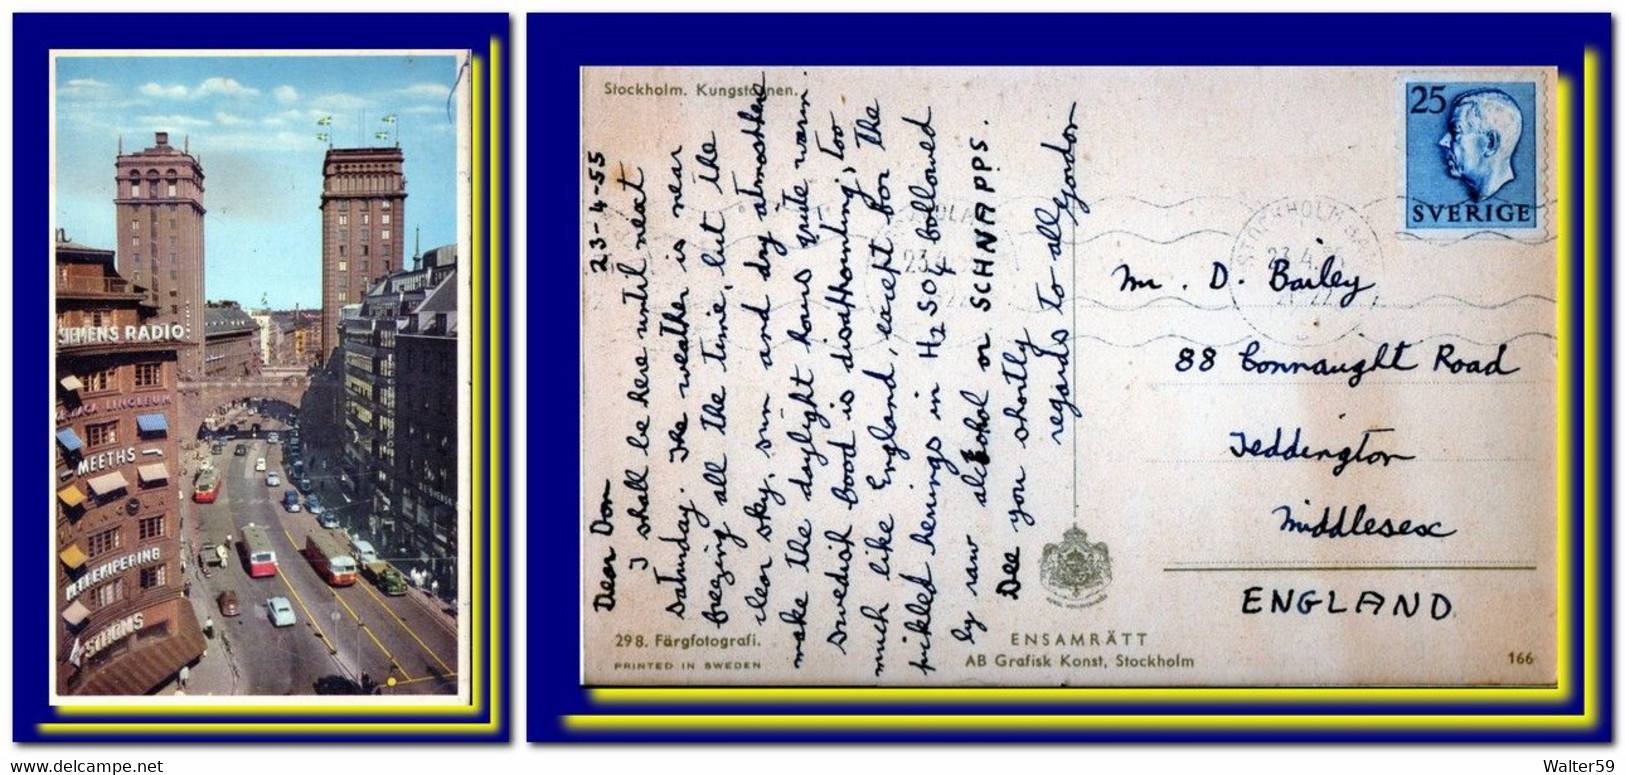 SIEMENS RADIO
LINOLEUM
MEETHS
M EKIPERING
STRÖMS
Stockholm. Kungstornen.
23-4-55
Dear Don
I shall be here until next
saturday. The weather is near
freezing all the time, but the
clear sky, sun and dry atmosphere
make the daylight hours quite warm.
Swedish food is disappointing; too
much like England, except for the
pickled herrings in H2SO4 followed
by raw alcohol or SCHNAPPS.
See you shortly
regards to all Gordon
298. Färgfotografi.
PRINTED IN SWEDEN
ENSAMRÄTT
AB Grafisk Konst, Stockholm
166
25
SVERIGE
STOCKHOLM BAN
23.4.55
21-22
Mr. D. Bailey
88 Connaught Road
Teddington
Middlesex
ENGLAND
www.delcampe.net
Walter59